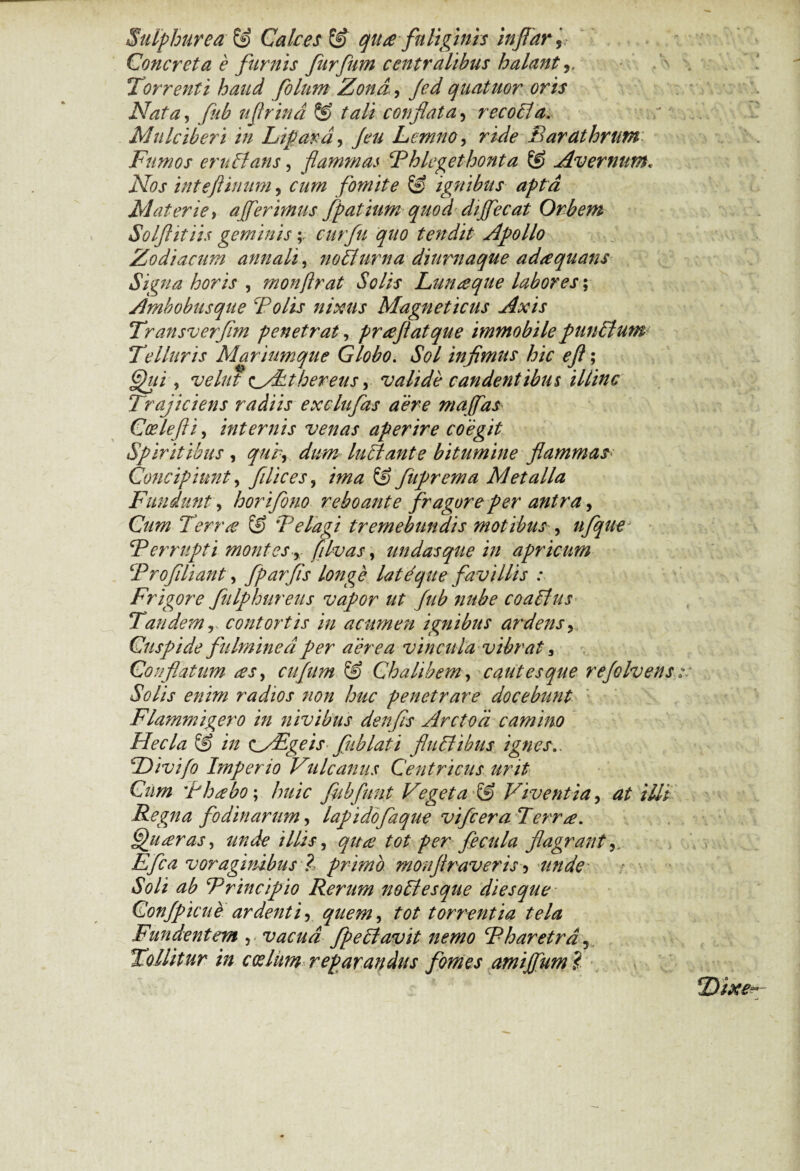 Sulphurea & Calces & quæ fuliginis inſtar,
Concreta è furnis ſurſum centralibus halant,
Torrenti haud ſolum Zonâ, ſed quatuor oris
Nata, ſub uſtrinâ & tali conflata, recocta.
Mulciberi in Liparâ, ſeu Lemno, ride Barathrum
Fumos eructans, flammas Phlegethonta & Avernum.
Nos inteſtinum, cum fomite & ignibus aptâ
Materie, aſſerimus ſpatium quod diſſecat Orbem
Solſtitiis geminis; curſu quo tendit Apollo
Zodiacum annali, nocturna diurnaque adæquans
Signa horis, monſtrat Solis Lunæque labores;
Ambobusque Polis nixus Magneticus Axis
Transverſim penetrat, præſtatque immobile punctum
Telluris Mariumque Globo. Sol infimus hic eſt;
Qui, velut Æthereus, validè candentibus illinc
Trajiciens radiis excluſas aëre maſſas
Cœleſti, internis venas aperire coëgit
Spiritibus, qui, dum luctante bitumine flammas
Concipiunt, ſilices, ima & ſuprema Metalla
Fundunt, horiſono reboante fragore per antra,
Cum Terræ & Pelagi tremebundis motibus, uſque
Perrupti montes, ſilvas, undasque in apricum
Proſiliant, ſparſis longè latéque favillis:
Frigore ſulphureus vapor ut ſub nube coactus
Tandem, contortis in acumen ignibus ardens,
Cuspide fulmineâ per aërea vincula vibrat,
Conflatum æs, cuſum & Chalibem, cautesque reſolvens:
Solis enim radios non huc penetrare docebunt
Flammigero in nivibus denſis Arctoâ camino
Hecla & in Ægeis ſublati fluctibus ignes.
Diviſo Imperio Vulcanus Centricus urit
Cum Phæbo; huic ſubſunt Vegeta & Viventia, at illi
Regna fodinarum, lapidoſaque viſcera Terræ.
Quæras, unde illis, quæ tot per ſecula flagrant,
Eſca voraginibus? primò monſtraveris, unde
Soli ab Principio Rerum noctesque diesque
Conſpicuè ardenti, quem, tot torrentia tela
Fundentem, vacuâ ſpectavit nemo Pharetrâ,
Tollitur in cœlum reparandus fomes amiſſum?
Dixe-